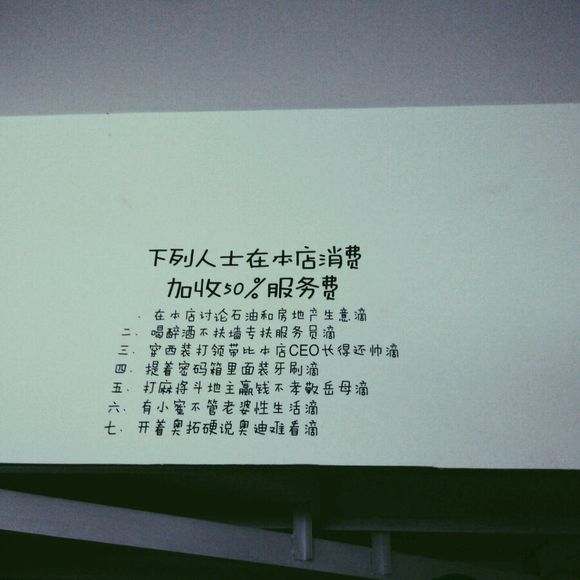 下列人士在本店消费
加收50%服务费
. 在本店讨论石油和房地产生意滴
二. 喝醉酒不扶墙专扶服务员滴
三. 穿西装打领带比本店CEO长得还帅滴
四. 提着密码箱里面装牙刷滴
五. 打麻将斗地主赢钱不孝敬岳母滴
六. 有小蜜不管老婆性生活滴
七. 开着奥拓硬说奥迪难看滴